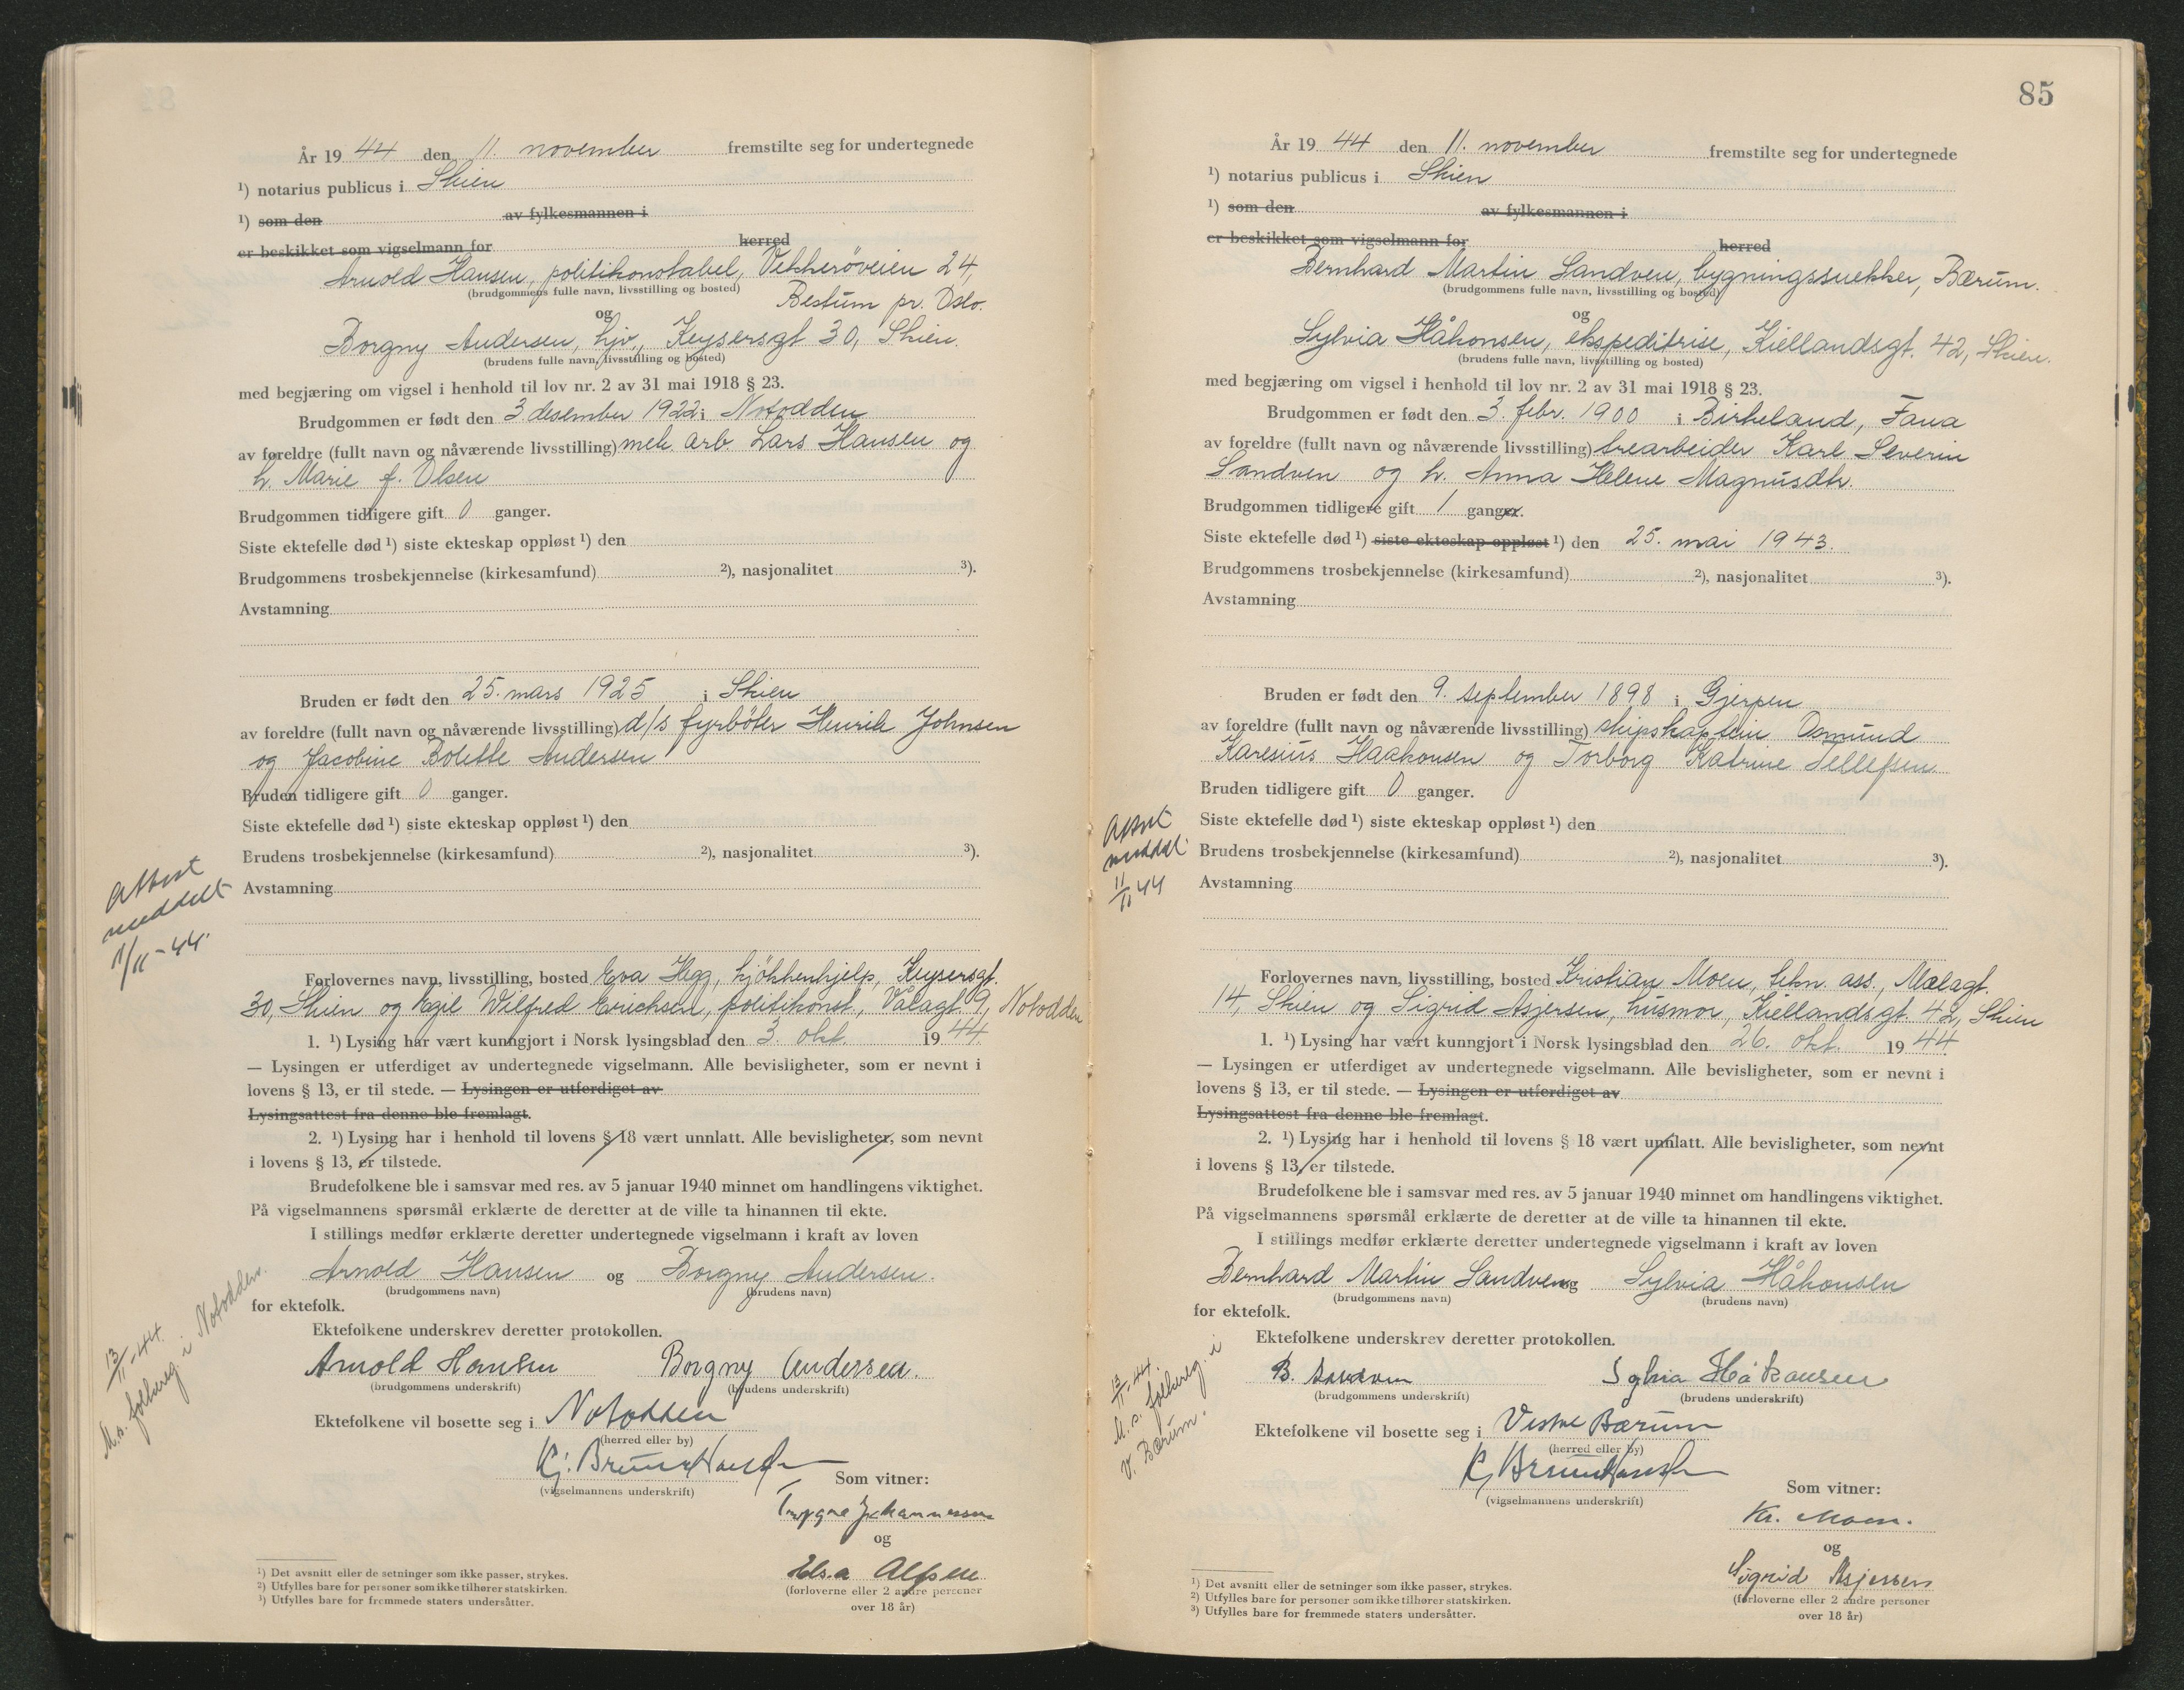 År 19 44 den 11. november fremstilte seg for undertegnede
1) notarius publicus i Skien
1) som den av fylkesmannen i
er beskikket som vigselmann for herred
Arnold Hansen, politikonstabel, Vekkerøveien 24,
(brudgommens fulle navn, livsstilling og bosted)
Bestum pr. Oslo.
og
Borgny Andersen, hjv., Keysersgt 30, Skien.
(brudens fulle navn, livsstilling og bosted)
med begjæring om vigsel i henhold til lov nr. 2 av 31 mai 1918 § 23.
Brudgommen er født den 3. desember 1922 i Notodden
av foreldre (fullt navn og nåværende livsstilling) mek. arb Lars Hansen og
h. Marie f. Olsen
Brudgommen tidligere gift 0 ganger.
Siste ektefelle død 1) siste ekteskap oppløst 1) den
Brudgommens trosbekjennelse (kirkesamfund) 2), nasjonalitet 3).
Avstamning
Bruden er født den 25. mars 1925 i Skien
av foreldre (fullt navn og nåværende livsstilling) d/s fyrbøter Henrik Johnsen
og Jacobine Bolette Andersen
Bruden tidligere gift 0 ganger.
Siste ektefelle død 1) siste ekteskap oppløst 1) den
Brudens trosbekjennelse (kirkesamfund) 2), nasjonalitet 3).
Avstamning
Attest
meddelt
11/11-44.
Forlovernes navn, livsstilling, bosted Eva Hegg, kjøkkenhjelp, Keysersgt.
30, Skien og Egil Wilfred Erichsen, politikonst, Vålagt. 9, Notodden
1. 1) Lysing har vært kunngjort i Norsk lysingsblad den 3. okt. 19 44
— Lysingen er utferdiget av undertegnede vigselmann. Alle bevisligheter, som er nevnt i
lovens § 13, er til stede. — Lysingen er utferdiget av
Lysingsattest fra denne ble fremlagt.
2. 1) Lysing har i henhold til lovens § 18 vært unnlatt. Alle bevisligheter, som nevnt
i lovens § 13, er tilstede.
Brudefolkene ble i samsvar med res. av 5 januar 1940 minnet om handlingens viktighet.
På vigselmannens spørsmål erklærte de deretter at de ville ta hinannen til ekte.
I stillings medfør erklærte deretter undertegnede vigselmann i kraft av loven
Arnold Hansen og Borgny Andersen.
(brudgommens navn) (brudens navn)
for ektefolk.
Ektefolkene underskrev deretter protokollen.
Arnold Hansen Borgny Andersen.
(brudgommens underskrift) (brudens underskrift)
13/11-44.
M.s. folkereg. i Notodden.
Ektefolkene vil bosette seg i Notodden
(herred eller by)
Kj. Bruun Hansen
(vigselmannens underskrift)
Som vitner:
Trygve Johannessen
og
Elsa Alfsen
(forloverne eller 2 andre personer
over 18 år)
1) Det avsnitt eller de setninger som ikke passer, strykes.
2) Utfylles bare for personer som ikke tilhører statskirken.
3) Utfylles bare for fremmede staters undersåtter.
85
År 19 44 den 11. november fremstilte seg for undertegnede
1) notarius publicus i Skien
1) som den av fylkesmannen i
er beskikket som vigselmann for herred
Bernhard Martin Sandven, bygningssnekker, Bærum.
(brudgommens fulle navn, livsstilling og bosted)
og
Sylvia Håkonsen, ekspeditrise, Kiellandsgt. 42, Skien.
(brudens fulle navn, livsstilling og bosted)
med begjæring om vigsel i henhold til lov nr. 2 av 31 mai 1918 § 23.
Brudgommen er født den 3. febr. 1900 i Birkeland, Fana
av foreldre (fullt navn og nåværende livsstilling) trearbeider Karl Severin
Sandven og h. Anna Helene Magnusdtr.
Brudgommen tidligere gift 1 ganger.
Siste ektefelle død 1) siste ekteskap oppløst 1) den 25. mai 1943.
Brudgommens trosbekjennelse (kirkesamfund) 2), nasjonalitet 3).
Avstamning
Bruden er født den 9. september 1898 i Gjerpen
av foreldre (fullt navn og nåværende livsstilling) skipskaptein Osmund
Karesius Haakonsen og Torborg Katrine Tellefsen
Bruden tidligere gift 0 ganger.
Siste ektefelle død 1) siste ekteskap oppløst 1) den
Brudens trosbekjennelse (kirkesamfund) 2), nasjonalitet 3).
Avstamning
Attest
meddel.
11/11 44
Forlovernes navn, livsstilling, bosted Kristian Moen, tekn. ass., Mælagt.
14, Skien og Sigrid Asjersen, husmor, Kiellandsgt. 42, Skien
1. 1) Lysing har vært kunngjort i Norsk lysingsblad den 26. okt. 19 44
— Lysingen er utferdiget av undertegnede vigselmann. Alle bevisligheter, som er nevnt i
lovens § 13, er til stede. — Lysingen er utferdiget av
Lysingsattest fra denne ble fremlagt.
2. 1) Lysing har i henhold til lovens § 18 vært unnlatt. Alle bevisligheter, som nevnt
i lovens § 13, er tilstede.
Brudefolkene ble i samsvar med res. av 5 januar 1940 minnet om handlingens viktighet.
På vigselmannens spørsmål erklærte de deretter at de ville ta hinannen til ekte.
I stillings medfør erklærte deretter undertegnede vigselmann i kraft av loven
Bernhard Martin Sandven og Sylvia Håkonsen
(brudgommens navn) (brudens navn)
for ektefolk.
Ektefolkene underskrev deretter protokollen.
B. Sandven Sylvia Håkonsen
(brudgommens underskrift) (brudens underskrift)
13/11-44.
M.s. folkereg. i
V. Bærum.
Ektefolkene vil bosette seg i Vestre Bærum
(herred eller by)
Kj Bruun Hansen
(vigselmannens underskrift)
Som vitner:
Kr. Moen.
og
Sigrid Asjersen
(forloverne eller 2 andre personer
over 18 år)
1) Det avsnitt eller de setninger som ikke passer, strykes.
2) Utfylles bare for personer som ikke tilhører statskirken.
3) Utfylles bare for fremmede staters undersåtter.